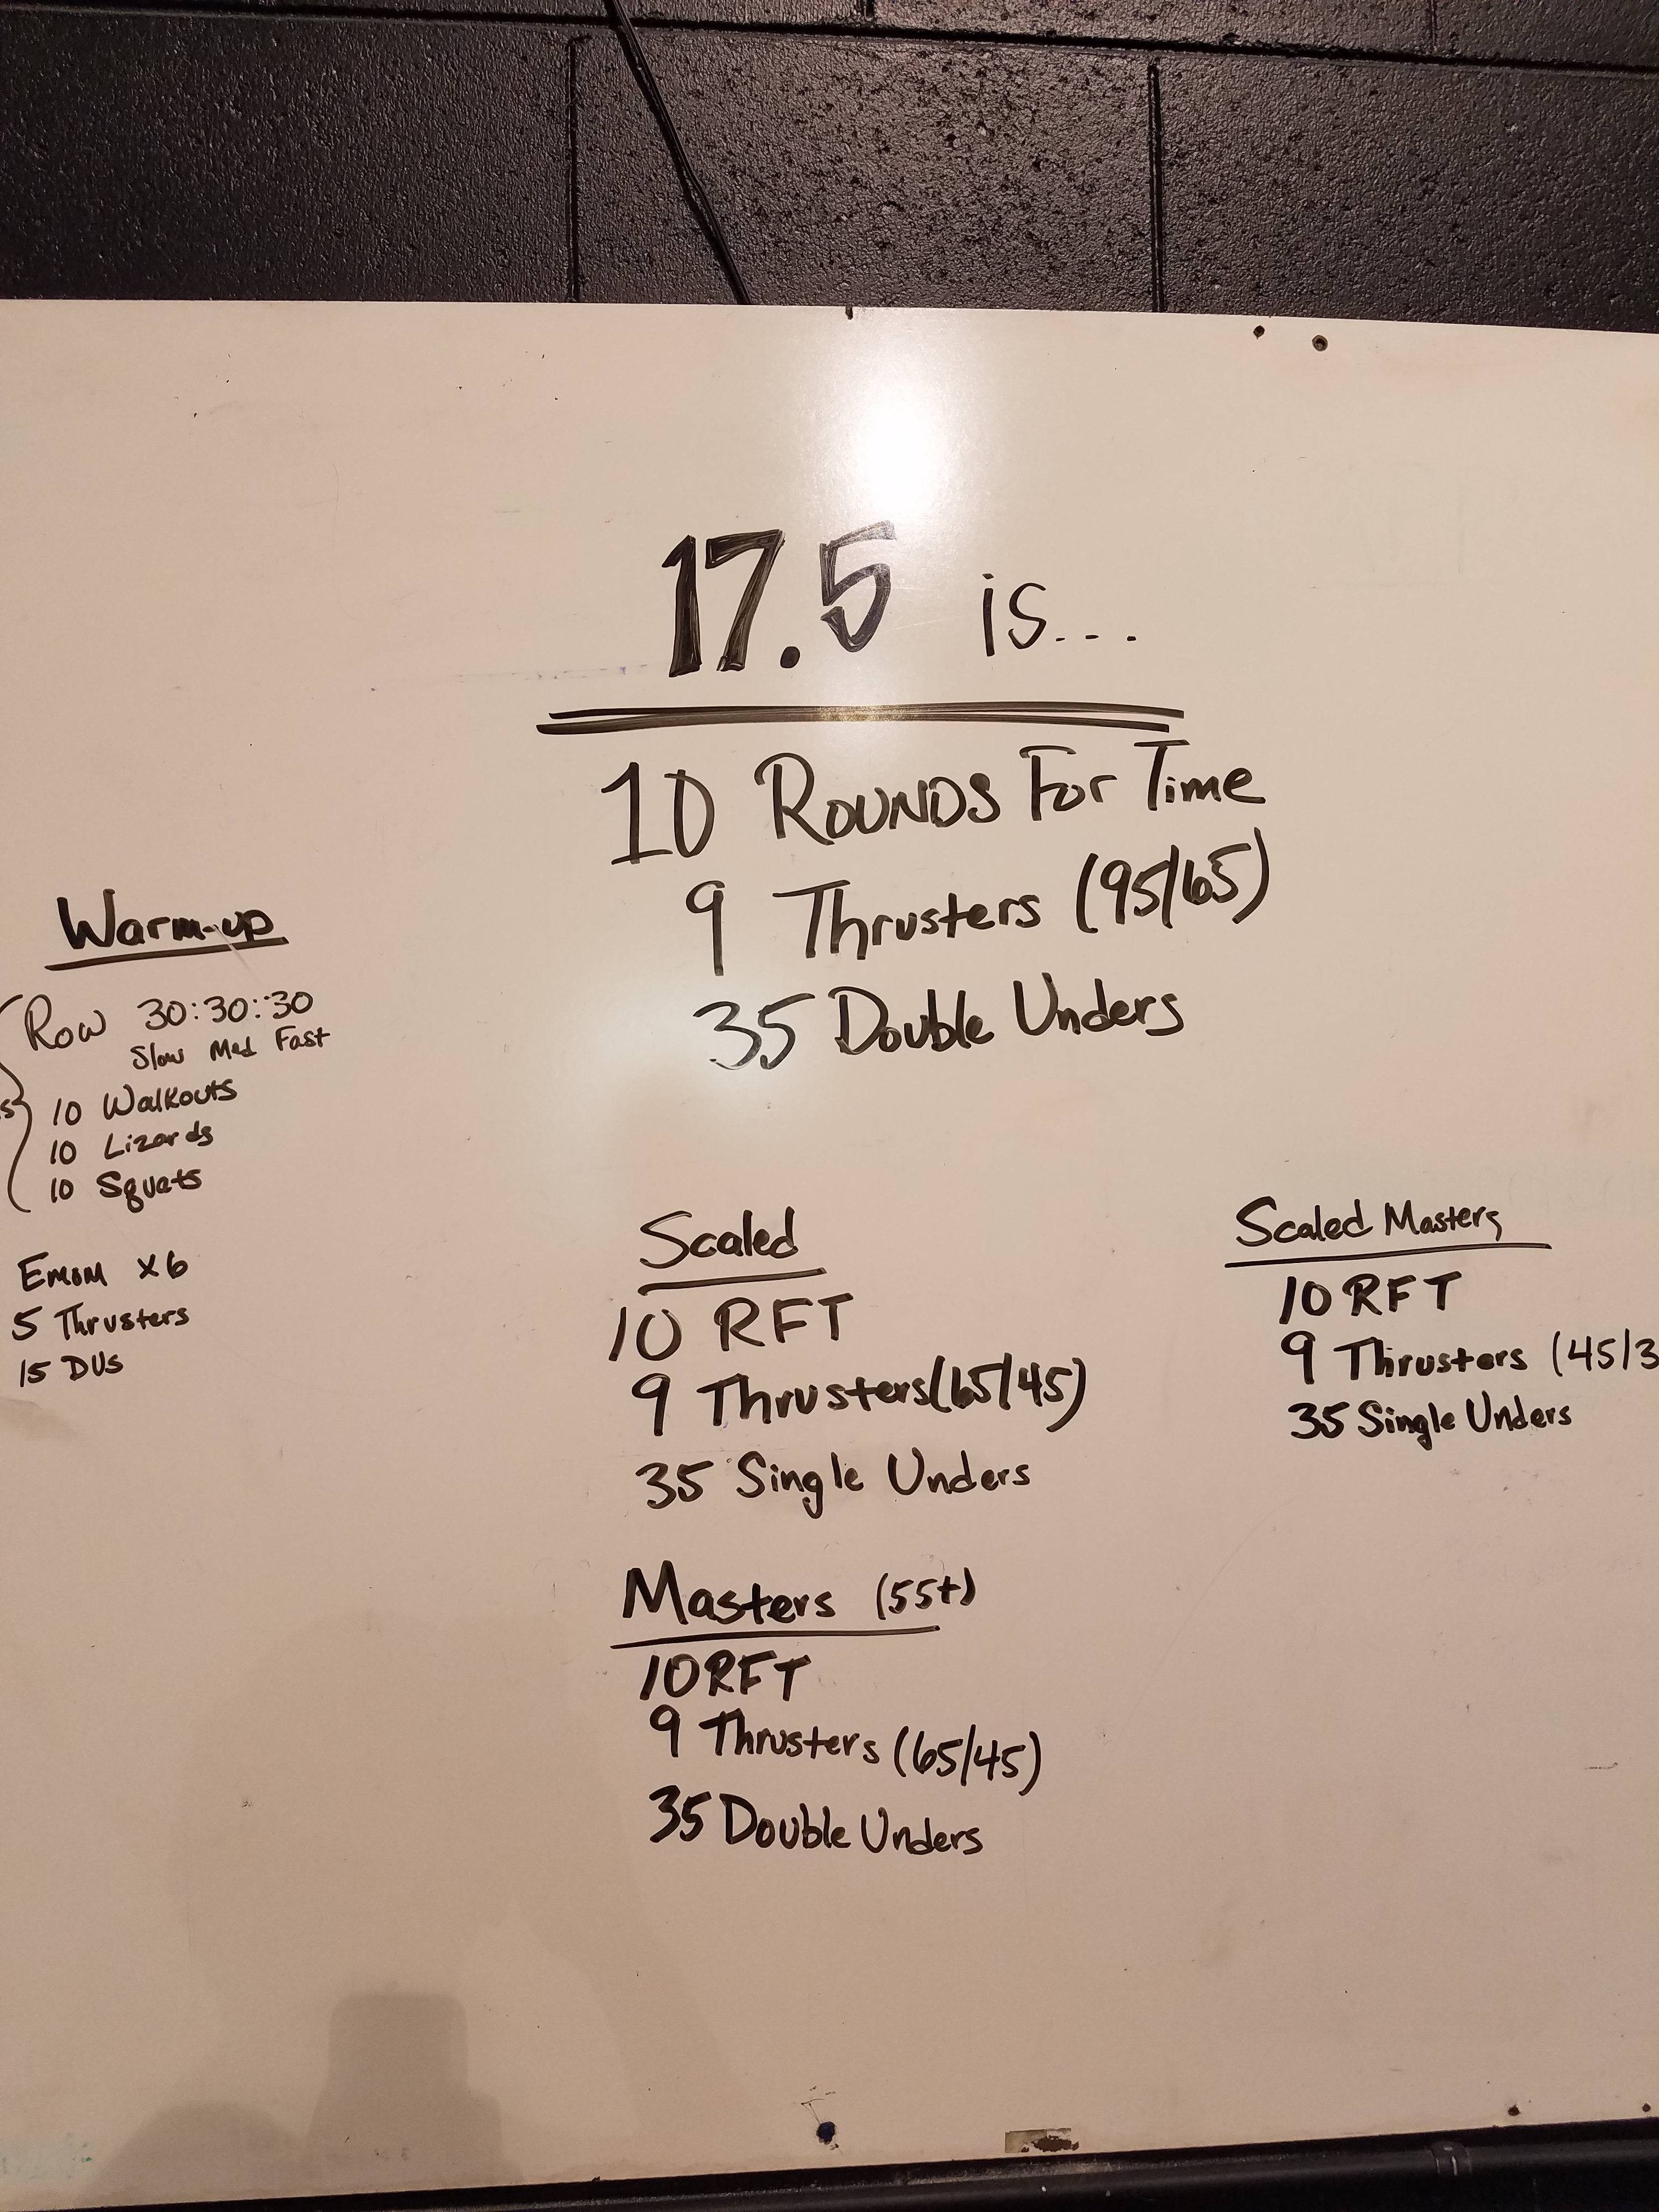 17.5 is...
10 Rounds For Time
9 Thrusters (95/65)
35 Double Unders
Warm-up
Row 30:30:30
Slow Med Fast
10 Walkouts
10 Lizards
10 Squats
Emom x6
5 Thrusters
15 DUs
Scaled
10 RFT
9 Thrusters (65/45)
35 Single Unders
Masters (55+)
10 RFT
9 Thrusters (65/45)
35 Double Unders
Scaled Masters
10 RFT
9 Thrusters (45/3
35 Single Unders